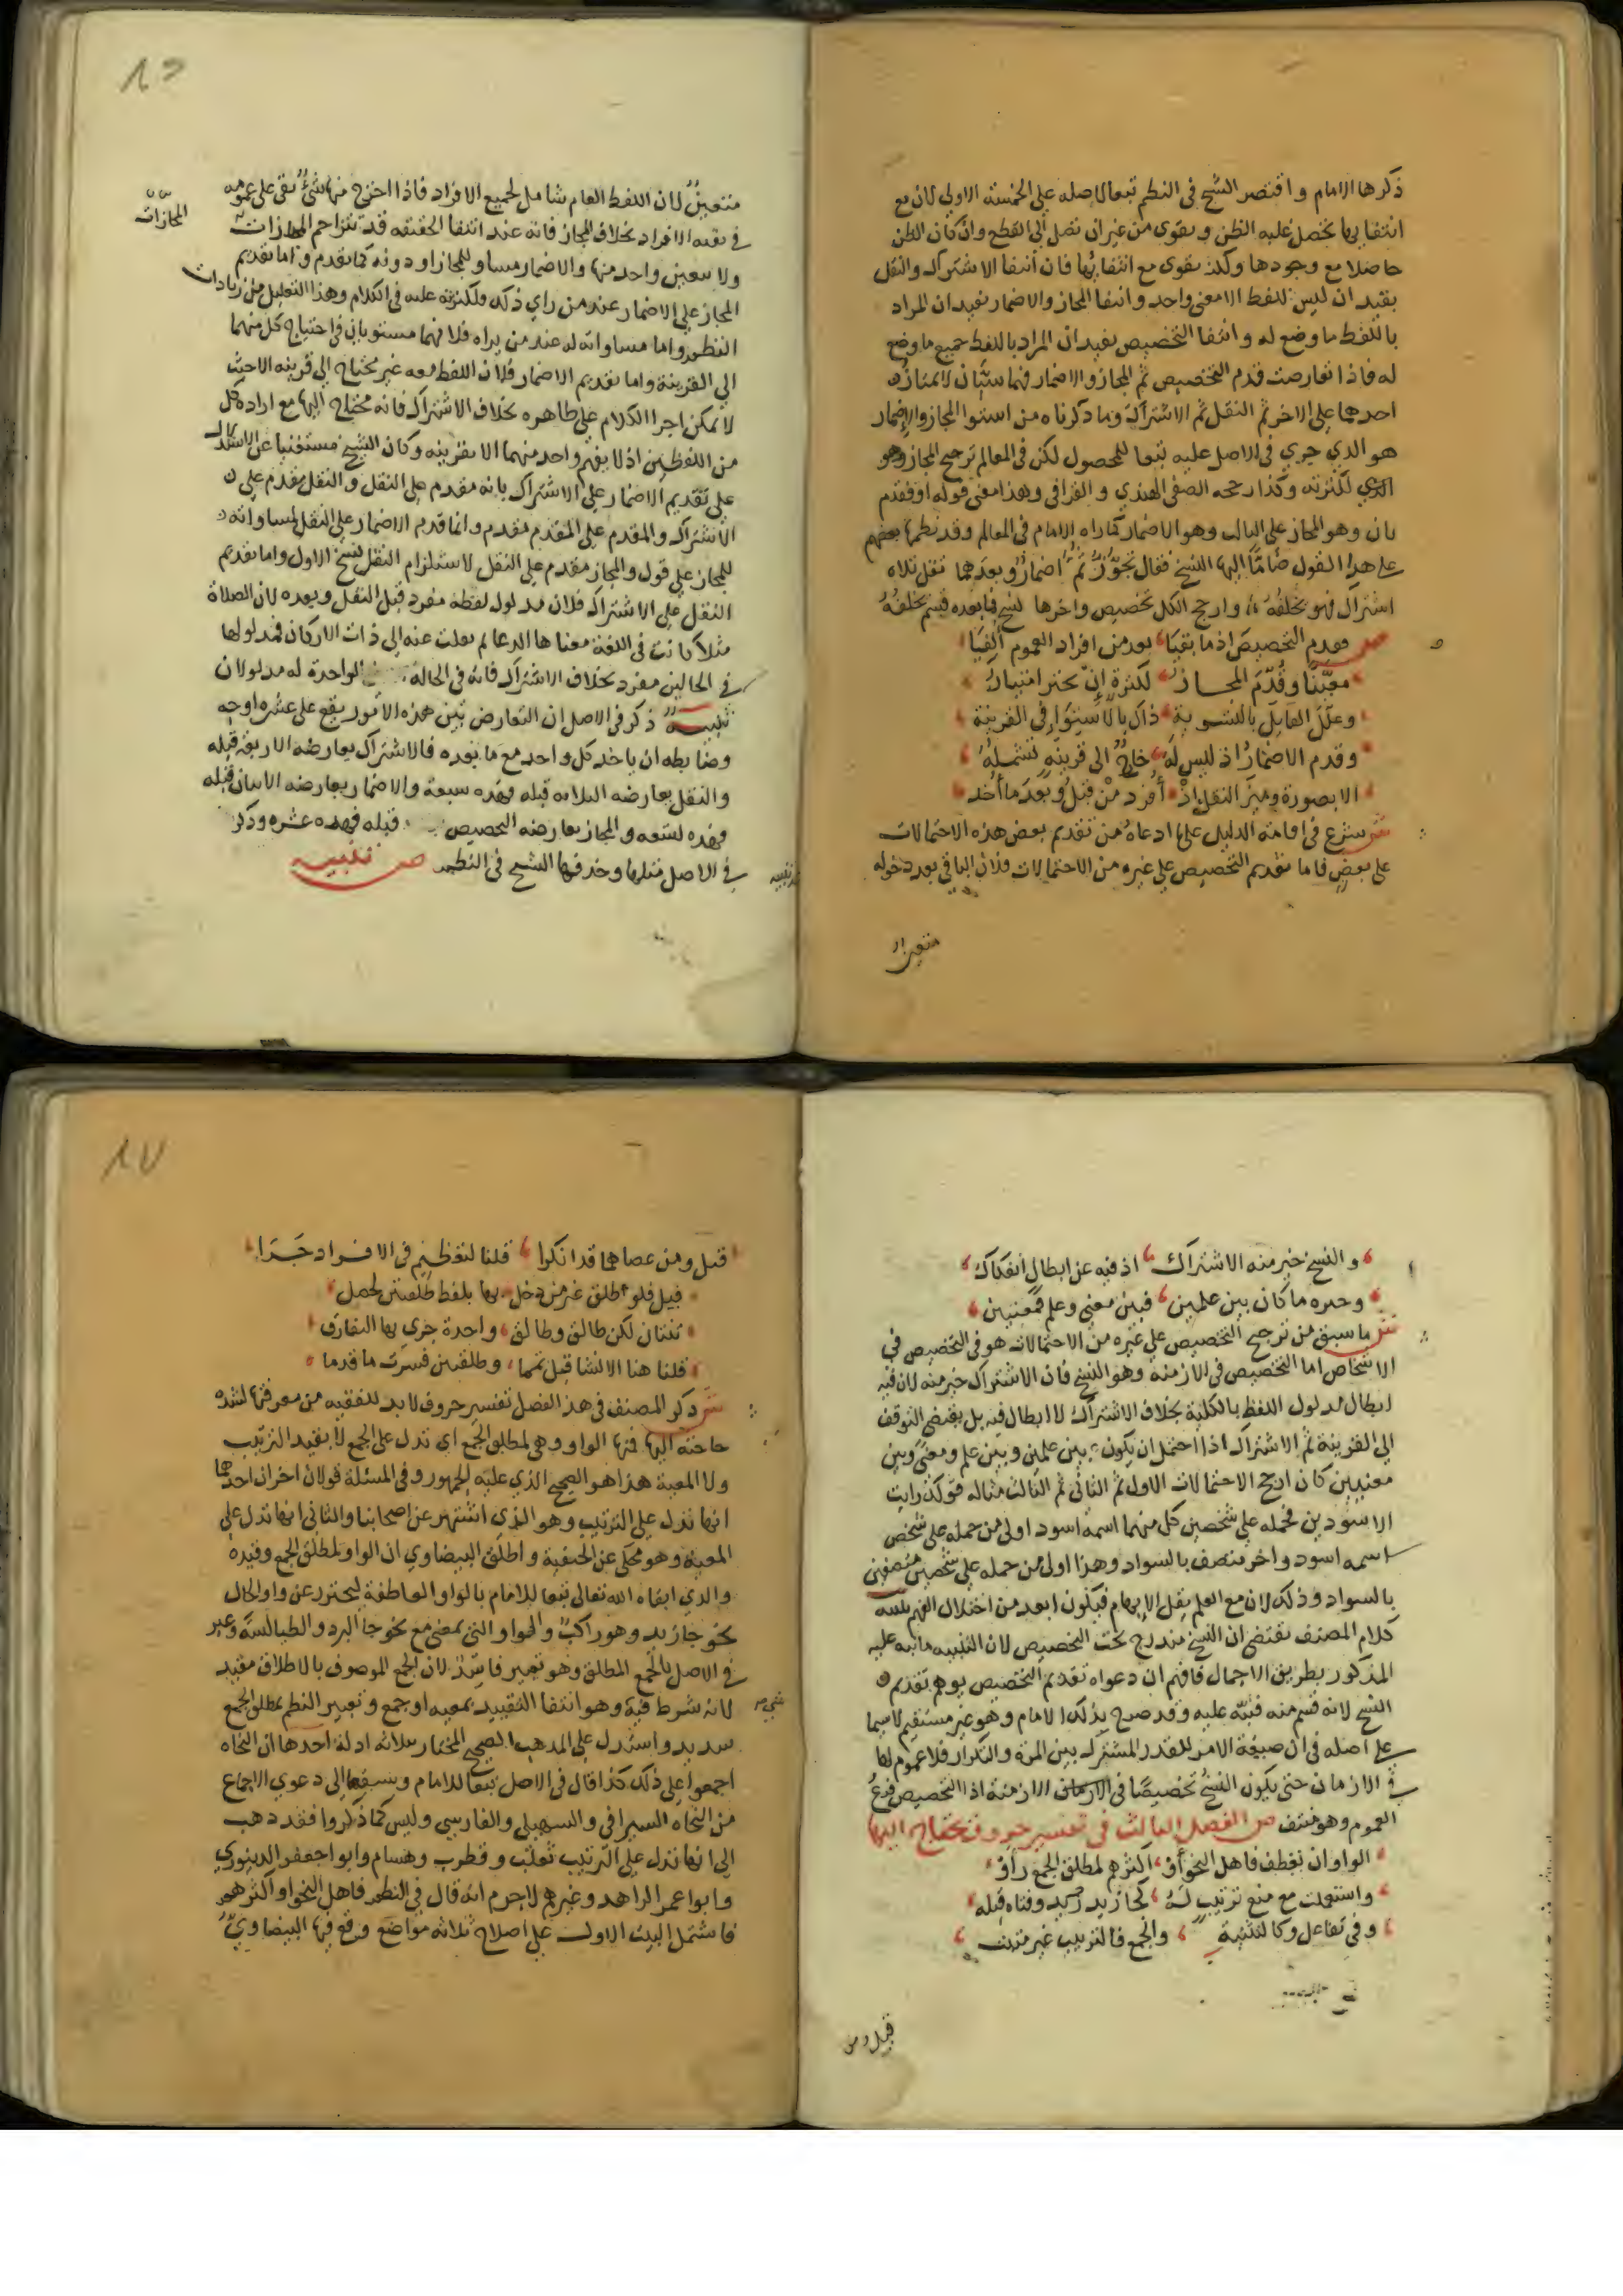 ذكرها الامام واقتصر الشيخ في النظم تبعا لاصله على الخمسة الاولى لان مع
انتفائها يحصل غلبة الظن ويقوى من غير ان تصل الى القطع وان كان الظن
حاصلا مع وجودها ولكن يقوى مع انتفائها فان انتفا الاشتراك والنقل
يفيد ان ليس للفظ الا معنى واحد وانتفا المجاز والاضمار يفيد ان المراد
باللفظ ما وضع له وانتفا التخصيص يفيد ان المراد باللفظ جميع ما وضع
له فاذا تعارضت قدم التخصيص ثم المجاز والاضمار فهما سيان لا يمتاز
احدهما على الاخر ثم النقل ثم الاشتراك وما ذكرناه من استوا المجاز والاضمار
هو الذي جرى في الاصل عليه تبعا للمحصول لكن في المعالم ترجيح المجاز وهو
الذي لكثرته وكذا رجحه الصفي الهندي والقرافي وهذا معنى قوله او فقدم
بان وهو المجاز على الثالث وهو الاضمار كما راه الامام في المعالم وقد نظمها بعضهم
على هذا القول ضاما اليها النسخ فقال تجوز ثم اضمار وبعدهما نقل تلاه
اشتراك فهو يخلفه وارجح الكل تخصيص واخرها نسخ فما بعده قسم يخلفه
ص فقدم التخصيص اذ ما بقيا بعد من افراد العموم الفيا
معينا وقدم المجاز لكثرة ان يختر امتياز
وعلل القايل بالتسوية ذاك بالاستوا في القرينة
وقدم الاضمار اذ ليس له حاج الى قرينة تشمله
الا بصورة وميز النقل اذ افرد من قبل وبعد ما اخذ
ش شرع في اقامة الدليل على ما ادعاه من تقديم بعض هذه الاحتمالات
على بعض فاما تقديم التخصيص على غيره من الاحتمالات فلان الباقي بعد دخوله
متعين لان
١٥
متعين لان اللفظ العام شامل لجميع الافراد فاذا اخرج منها شيء بقي على عمومه
في بقية الافراد بخلاف المجاز فانه عند انتفا الحقيقة قد تتزاحم المجازات
المجازات
ولا يتعين واحد منها والاضمار مساو للمجاز او دونه كما تقدم واما تقديم
المجاز على الاضمار عند من راى ذلك فلكثرته عليه في الكلام وهذا التعليل من زيادات
النظم واما مساواته له عند من يراه فلانهما مستويان في احتياج كل منهما
الى القرينة واما تقديم الاضمار فلان اللفظ معه غير محتاج الى قرينة الا حيث
لا يمكن اجرا الكلام على ظاهره بخلاف الاشتراك فانه محتاج اليها مع ارادة كل
من اللفظين اذ لا يفهم واحد منهما الا بقرينة وكان الشيخ مستغنيا عن الاستدلال
على تقديم الاضمار على الاشتراك بانه مقدم على النقل والنقل مقدم على
الاشتراك والمقدم على المقدم مقدم وانما قدم الاضمار على النقل لمساواته
للمجاز على قول والمجاز مقدم على النقل لاستلزام النقل نسخ الاول واما تقديم
النقل على الاشتراك فلان مدلول لفظه مفرد قبل النقل وبعده لان الصلاة
مثلا كانت في اللغة معناها الدعا ثم نقلت عنه الى ذات الاركان فمدلولها
في الحالين مفرد بخلاف الاشتراك فانه في الحالة الواحدة له مدلولان
تنبيه ذكر في الاصل ان التعارض بين هذه الامور يقع على عشرة اوجه
وضابطه ان ياخذ كل واحد مع ما بعده فالاشتراك يعارضه الاربعة قبله
والنقل يعارضه الثلاثة قبله فهذه سبعة والاضمار يعارضه الاثنان قبله
فهذه تسعة والمجاز يعارضه التخصيص قبله فهذه عشرة وذكر
في الاصل مثلها وحذفها الشيخ في النظم ص تنبيه
والنسخ خير منه الاشتراك اذ فيه عن ابطال انفكاك
وخيره ما كان بين علمين فبين معنى وعلم فمعنيين
ش ما سبق من ترجيح التخصيص على غيره من الاحتمالات هو في التخصيص في
الاشخاص اما التخصيص في الازمنة وهو النسخ فان الاشتراك خير منه لان فيه
ابطال مدلول اللفظ بالكلية بخلاف الاشتراك لا ابطال فيه بل يقتضي التوقف
الى القرينة ثم الاشتراك اذا احتمل ان يكون بين علمين وبين علم ومعنى وبين
معنيين كان ارجح الاحتمالات الاول ثم الثاني ثم الثالث مثاله قولك رايت
الاسودين فحمله على شخصين كل منهما اسمه اسود اولى من حمله على شخص
اسمه اسود واخر متصف بالسواد وهذا اولى من حمله على شخصين متصفين
بالسواد وذلك لان مع العلم يقل الابهام فيكون ابعد من اختلال الفهم تنبيه
كلام المصنف يقتضي ان النسخ مندرج تحت التخصيص لان التنبيه ما نبه عليه
المذكور بطريق الاجمال فافهم ان دعواه تقديم التخصيص يوهم تقديم
النسخ لانه قسم منه فنبه عليه وقد صرح بذلك الامام وهو غير مستقيم لا سيما
على اصله في ان صيغة الامر للقدر المشترك بين المرة والتكرار فلا عموم لها
في الازمان حتى يكون النسخ تخصيصا في الازمان الازمنة اذ التخصيص فرع
العموم وهو منتف ص الفصل الثالث في تفسير حروف يحتاج اليها
الواو ان تعطف فاهل النحو اكثرهم لمطلق الجمع راو
واستعملت مع منع ترتيب له كجا زيد وفتاه قبله
وفي تفاعل وكالتثنية والجمع فالترتيب غير مثبت
قيل ومن
١٧
قيل ومن عصاهما قد انكرا قلنا لتعظيم في الافراد جرا
قيل فلو طلق غير من دخل بها بلفظ طلقتين لحصل
ثنتان لكن طالق وطالق واحدة جرى بها التفارق
قلنا هنا الانشا قبل تما وطلقتين فسرت ما قدما
ش ذكر المصنف في هذا الفصل تفسير حروف لابد للفقيه من معرفتها لشدة
حاجته اليها فمنها الواو وهي لمطلق الجمع اي تدل على الجمع لا بقيد الترتيب
ولا المعية هذا هو الصحيح الذي عليه الجمهور وفي المسئلة قولان اخران احدهما
انها تدل على الترتيب وهو الذي اشتهر عن اصحابنا والثاني انها تدل على
المعية وهو محكي عن الحنفية واطلق البيضاوي ان الواو لمطلق الجمع وقيده
والدي ابقاه الله تعالى تبعا للامام بالواو العاطفة ليحترز عن واو الحال
نحو جا زيد وهو راكب والواو التي بمعنى مع نحو جا البرد والطيالسة وعبر
في الاصل بالجمع المطلق وهو تعبير فاسد لان الجمع الموصوف بالاطلاق مقيد
لانه شرط فيه وهو انتفا التقييد بمعية او جمع وتعبير النظم بمطلق الجمع
سديد واستدل على المذهب الصحيح المختار بثلاثة ادلة احدها ان النحاة
اجمعوا على ذلك كذا قال في الاصل تبعا للامام وسبقهما الى دعوى الاجماع
من النحاة السيرافي والسهيلي والفارسي وليس كما ذكروا فقد ذهب
الى انها تدل على الترتيب ثعلب وقطرب وهشام وابو جعفر الدينوري
وابو عمر الزاهد وغيرهم لا جرم انه قال في النظم فاهل النحو او اكثرهم
فاشتمل البيت الاول على اصلاح ثلاثة مواضع وقع فيها البيضاوي